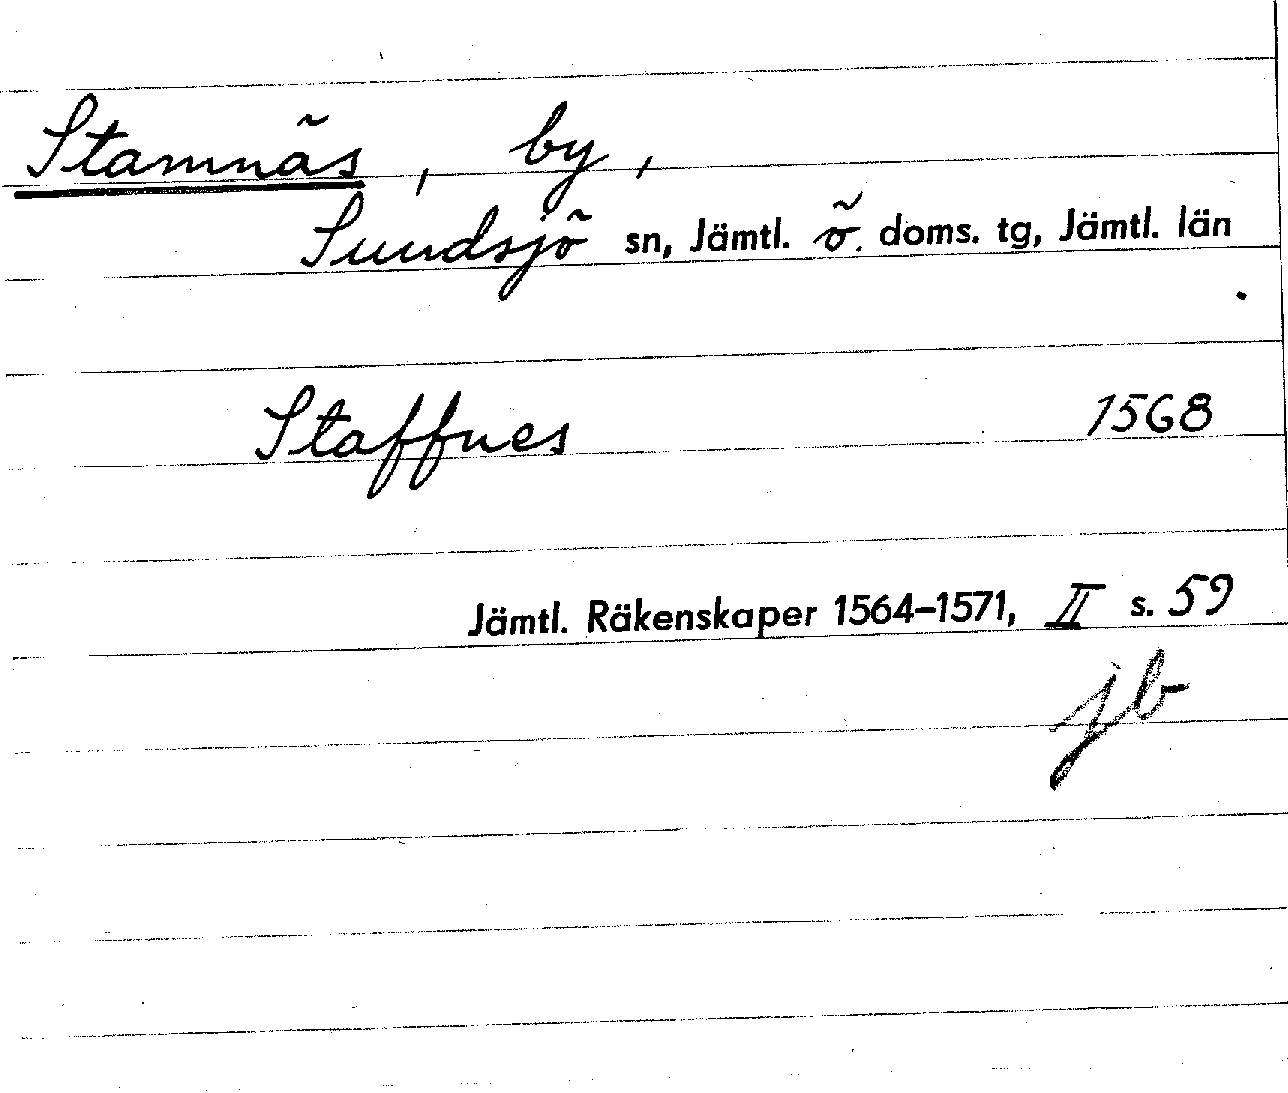 Stamnäs, by,
Sundsjö sn, Jämtl. ö. doms. tg, Jämtl. län
Staffnes 1568
Jämtl. Räkenskaper 1564–1571, II s. 59
jb